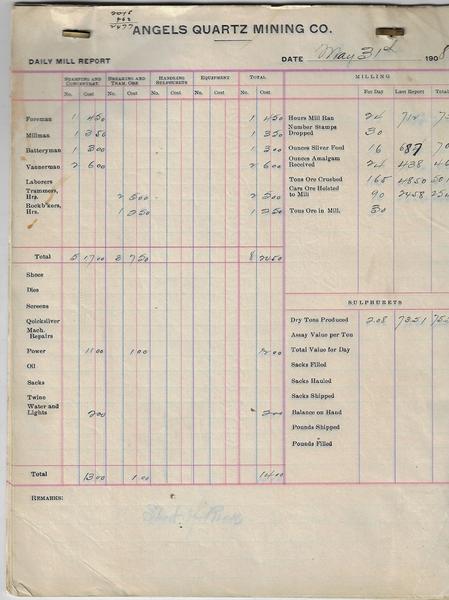 ANGELS QUARTZ MINING CO.
DAILY MILL REPORT DATE May 31st 1908
STAMPING AND CONCENTRAT. BREAKING AND TRAM. ORE HANDLING SULPHURETS EQUIPMENT TOTAL MILLING
No. Cost No. Cost No. Cost No. Cost No. Cost Per Day Last Report Total
Foreman 1 4 50 1 4 50 Hours Mill Ran 24
Millman 1 3 50 1 3 50 Number Stamps Dropped 30
Batteryman 1 3 00 1 3 00 Ounces Silver Feed 16 687
Vannerman 2 6 00 2 6 00 Ounces Amalgam Received 24 438
Laborers Tons Ore Crushed 165 4850
Trammers, Hrs. 2 5 00 2 5 00 Cars Ore Hoisted to Mill 90 2458
Rockb'kers, Hrs. 1 2 50 1 2 50 Tons Ore in Mill, 30
Total 5 17 00 3 7 50 8 24 50
Shoes
Dies
Screens SULPHURETS
Quicksilver Dry Tons Produced 2.08 7351
Mach. Repairs Assay Value per Ton
Power 11 00 1 00 12 00 Total Value for Day
Oil Sacks Filled
Sacks Sacks Hauled
Twine Sacks Shipped
Water and Lights 2 00 2 00 Balance on Hand
Pounds Shipped
Pounds Filled
Total 13 00 1 00 14 00
REMARKS: